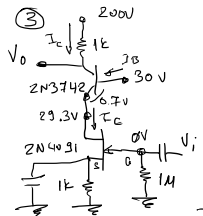 ③ 200V
Ic 1k
Vo IB 30V
2N3742 0.7V
29.3V Ic
2N4091 0V Vi
S G
1k 1M